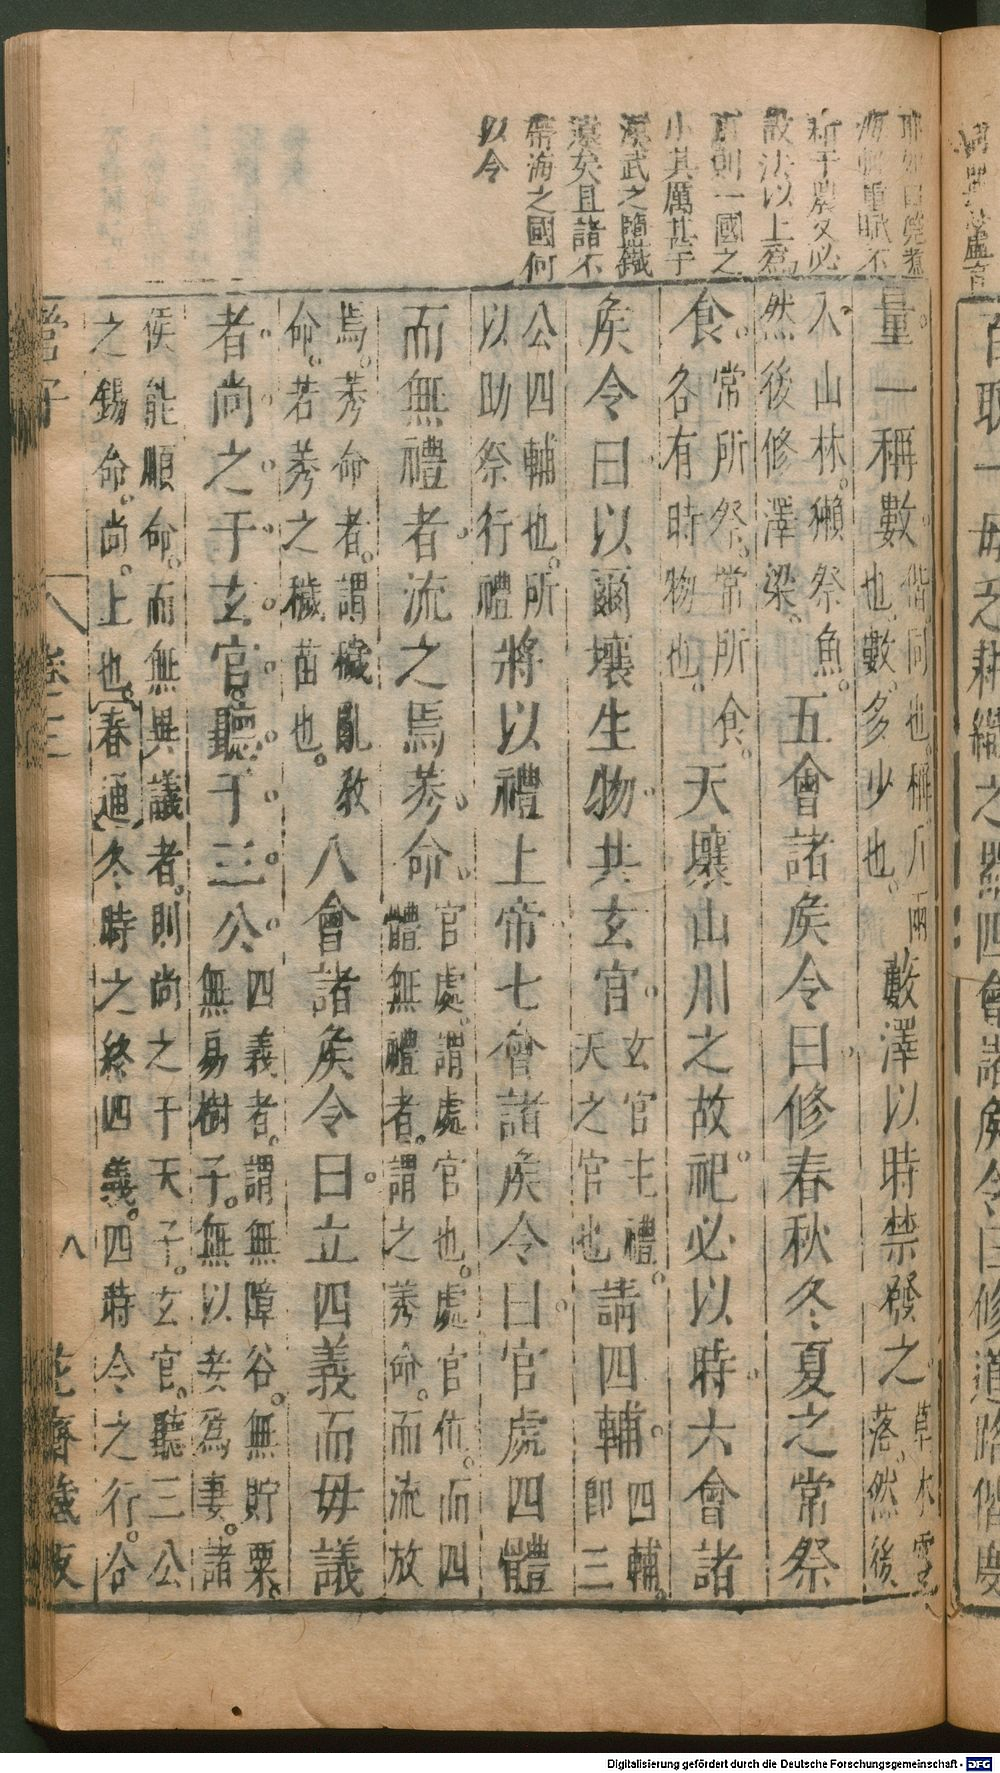 海
重賦不
于農又必
設法以上爲
則一國之
小其厲甚于
漢武之鹽鐵
遠矣且諸不
帶海之國何
以令
量一稱數偕同也稱斤兩也數多少也藪澤以時禁發之草木零落然後
入山林獺祭魚然後修澤梁五會諸矦令曰修春秋冬夏之常祭
食常所祭常所食各有時物也天壤山川之故祀必以時六會諸
矦令曰以爾壤生物共玄官玄官主禮天之官也請四輔四輔即三
公四輔也所以助祭行禮將以禮上帝七會諸矦令曰官處四體
而無禮者流之焉莠命官處謂處官也處官位而四體無禮者謂之莠命而流放
焉莠命者謂穢亂敎命若莠之穢苗也八會諸矦令曰立四義而毋議
者尚之于玄官聽于三公四義者謂無障谷無貯粟無易樹子無以妾爲妻諸
侯能順命而無異議者則尚之于天子玄官聽三公之錫命尚上也春通冬時之終四義四時令之行谷
管子
卷三
八
花齋藏板
百取一毋乏耕織之器四會諸矦令曰修道路偕度
Digitalisierung gefördert durch die Deutsche Forschungsgemeinschaft - DFG